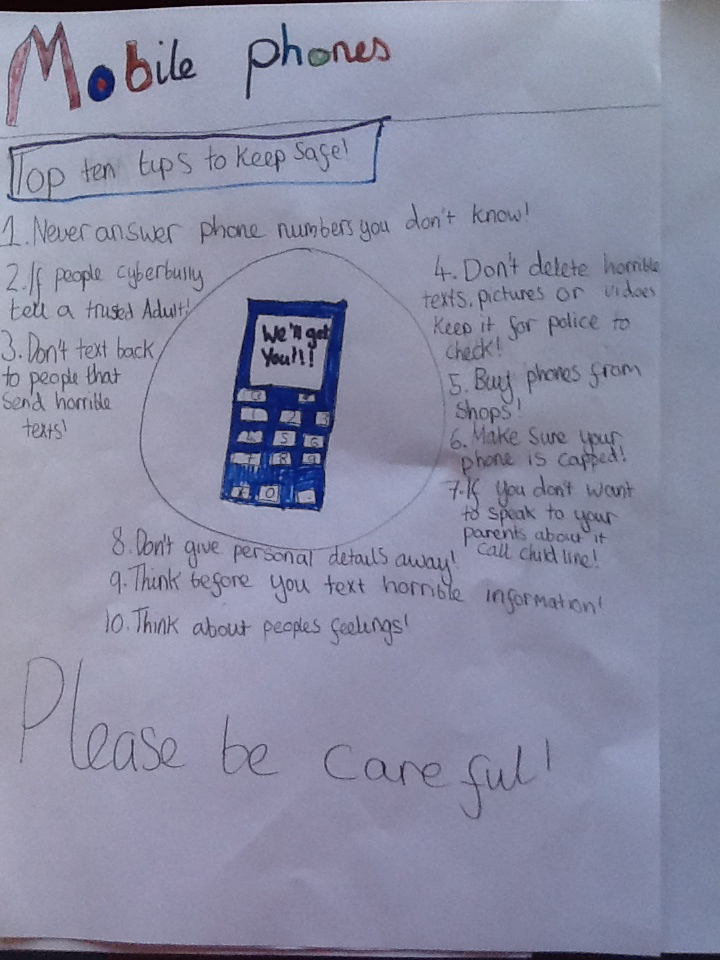 Mobile phones
Top ten tips to keep safe!
1. Never answer phone numbers you don't know!
2. If people cyberbully
tell a trusted Adult!
3. Don't text back
to people that
send horrible
texts!
We'll get
You!!!
1 2 3
4 5 6
7 8 9
0
4. Don't delete horrible
texts, pictures or vidoes
Keep it for police to
check!
5. Buy phones from
shops!
6. Make Sure your
phone is capped!
7. If you don't want
to speak to your
parents about it
call childline!
8. Don't give personal details away!
9. Think before you text horrible information!
10. Think about peoples feelings!
Please be careful!